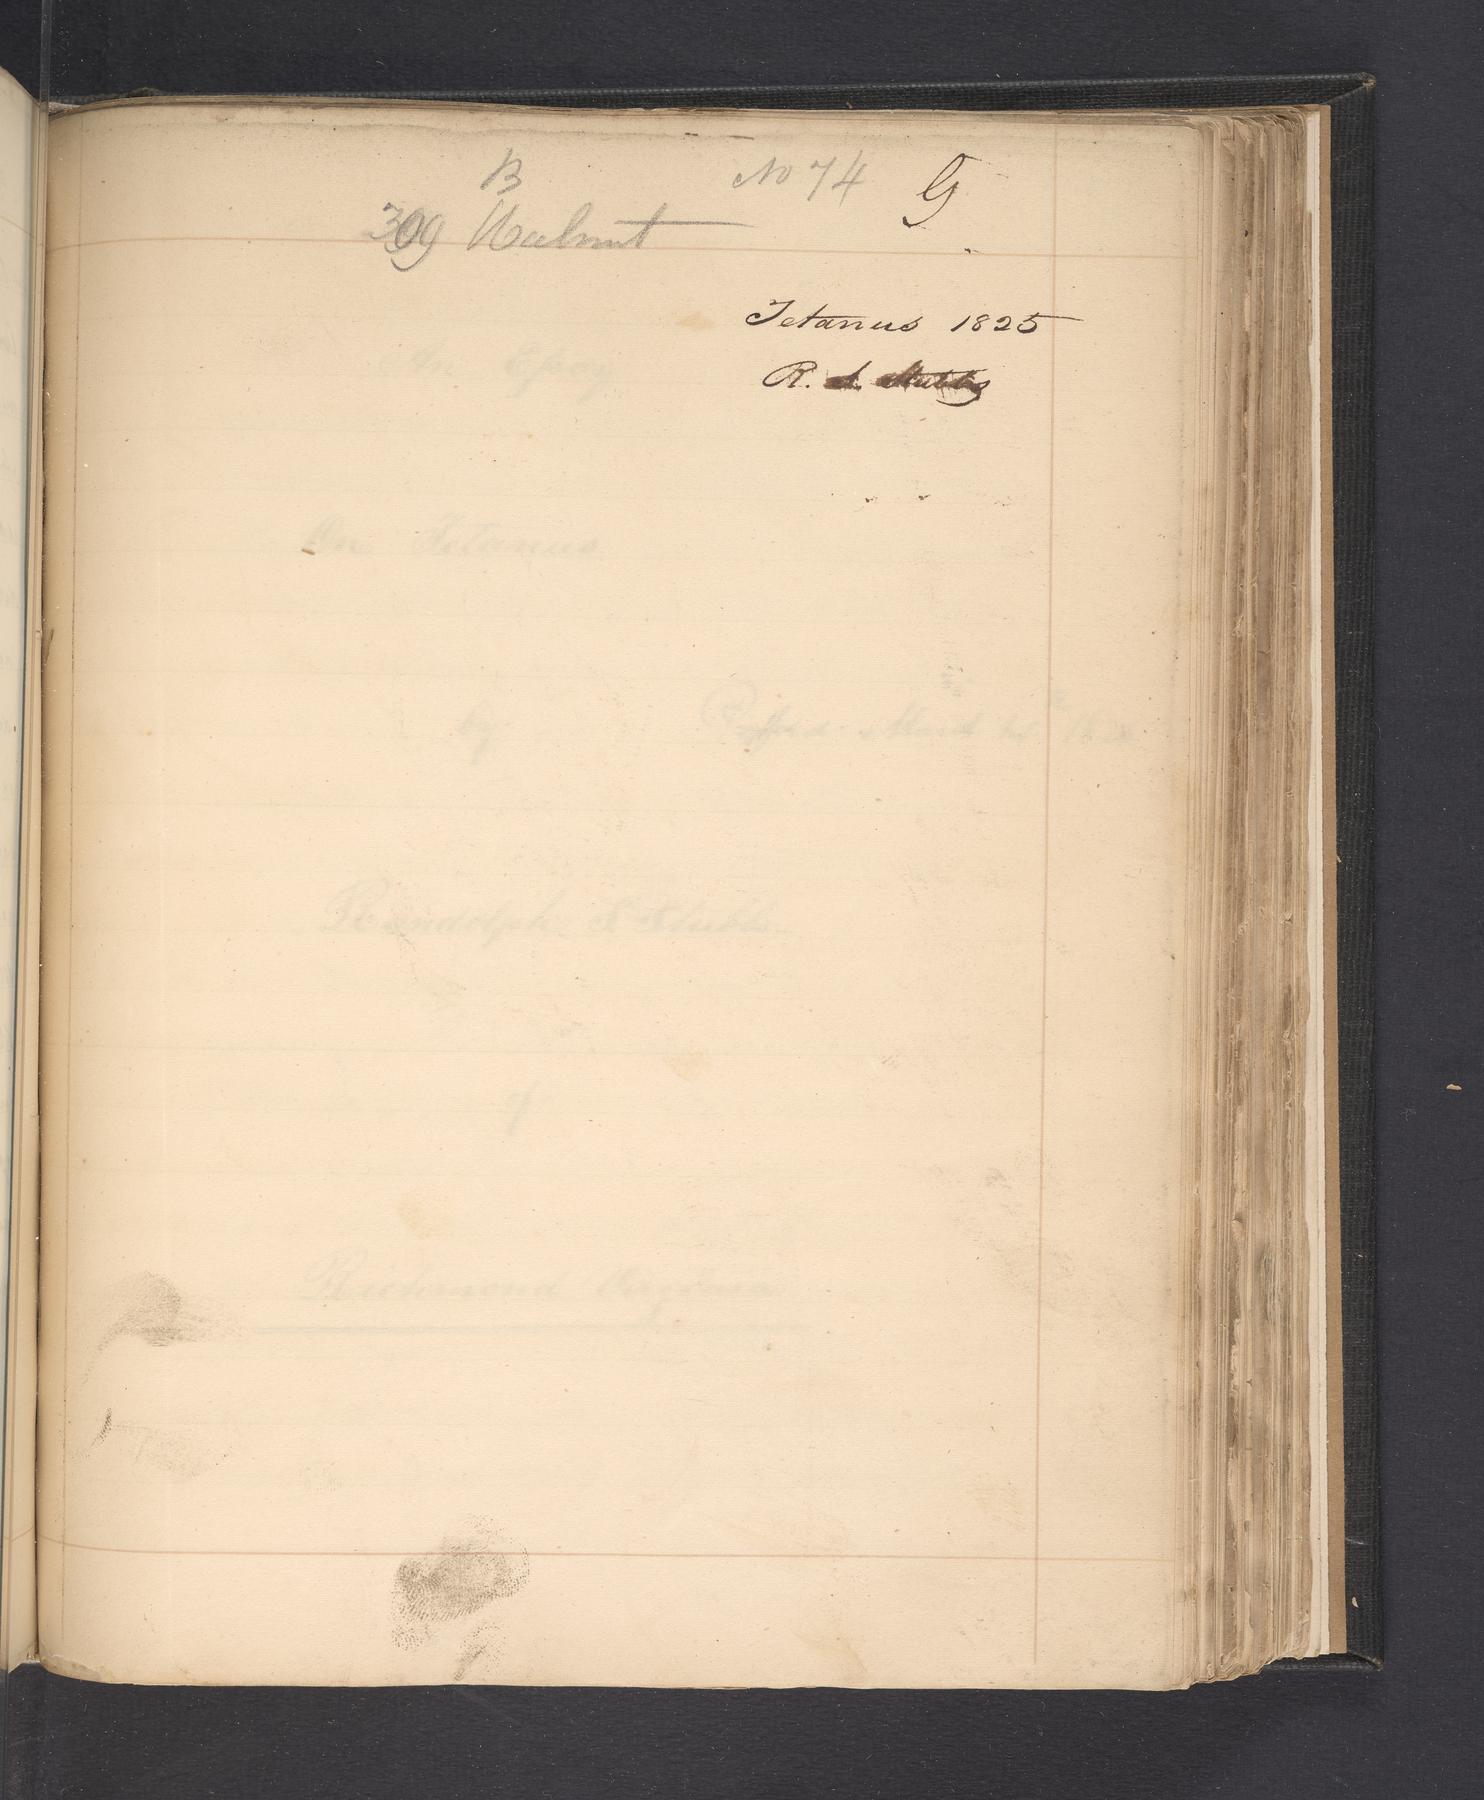 B No 74 G
309 Walnut
Tetanus 1825
R. S. Stubbs
An Essay
On Tetanus
by
Randolph S Stubbs
of
Richmond Virginia